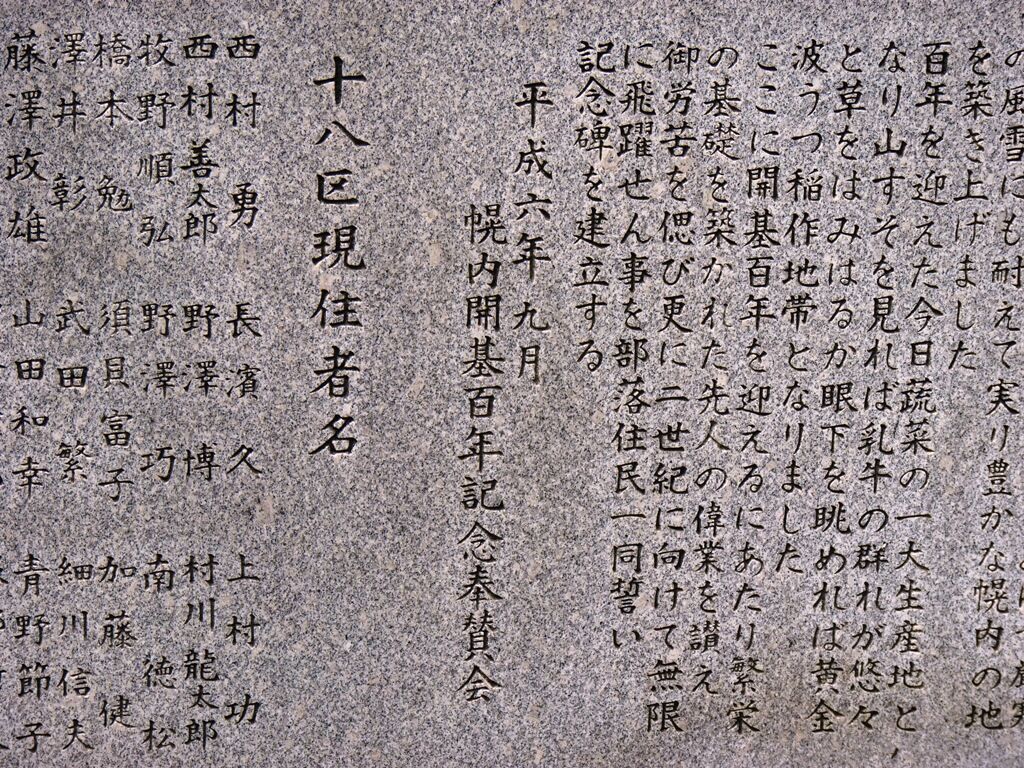 の風雪にも耐えて実り豊かな幌内の地
を築き上げました
百年を迎えた今日蔬菜の一大生産地と
なり山すそを見れば乳牛の群れが悠々
と草をはみはるか眼下を眺めれば黄金
波うつ稲作地帯となりました
ここに開基百年を迎えるにあたり繁栄
の基礎を築かれた先人の偉業を讃え
御労苦を偲び更に二世紀に向けて無限
に飛躍せん事を部落住民一同誓い
記念碑を建立する
平成六年九月
幌内開基百年記念奉賛会
十八区現住者名
西村 勇 長濱 久 上村 功
西村善太郎 野澤 博 村川龍太郎
牧野順弘 野澤 巧 南 徳松
橋本 勉 須貝富子 加藤 健
澤井 彰 武田 繁 細川信夫
藤澤政雄 山田和幸 青野節子